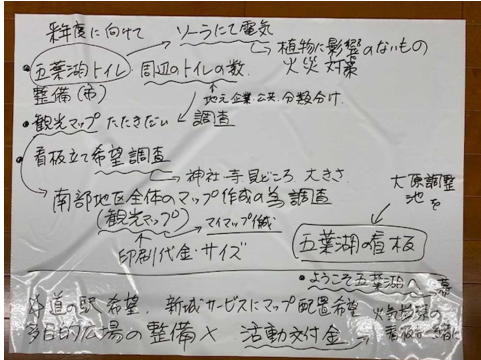 来年度に向けて
ソーラにて電気
植物に影響のないもの
火災対策
・五葉湖トイレ
整備(市)
周辺のトイレの数
地元企業・公共・分類分け
・観光マップ たたきだい 調査
・看板立て希望調査
神社・寺見どころ 大きさ
南部地区全体のマップ作成の為調査
(観光マップ) マイマップ作成
印刷代金・サイズ
大原調整
池を
五葉湖の看板
・ようこそ五葉湖へ 幕
道の駅希望. 新城サービスにマップ配置希望
多目的広場の整備× 活動交付金
火気厳禁の
看板も一緒に